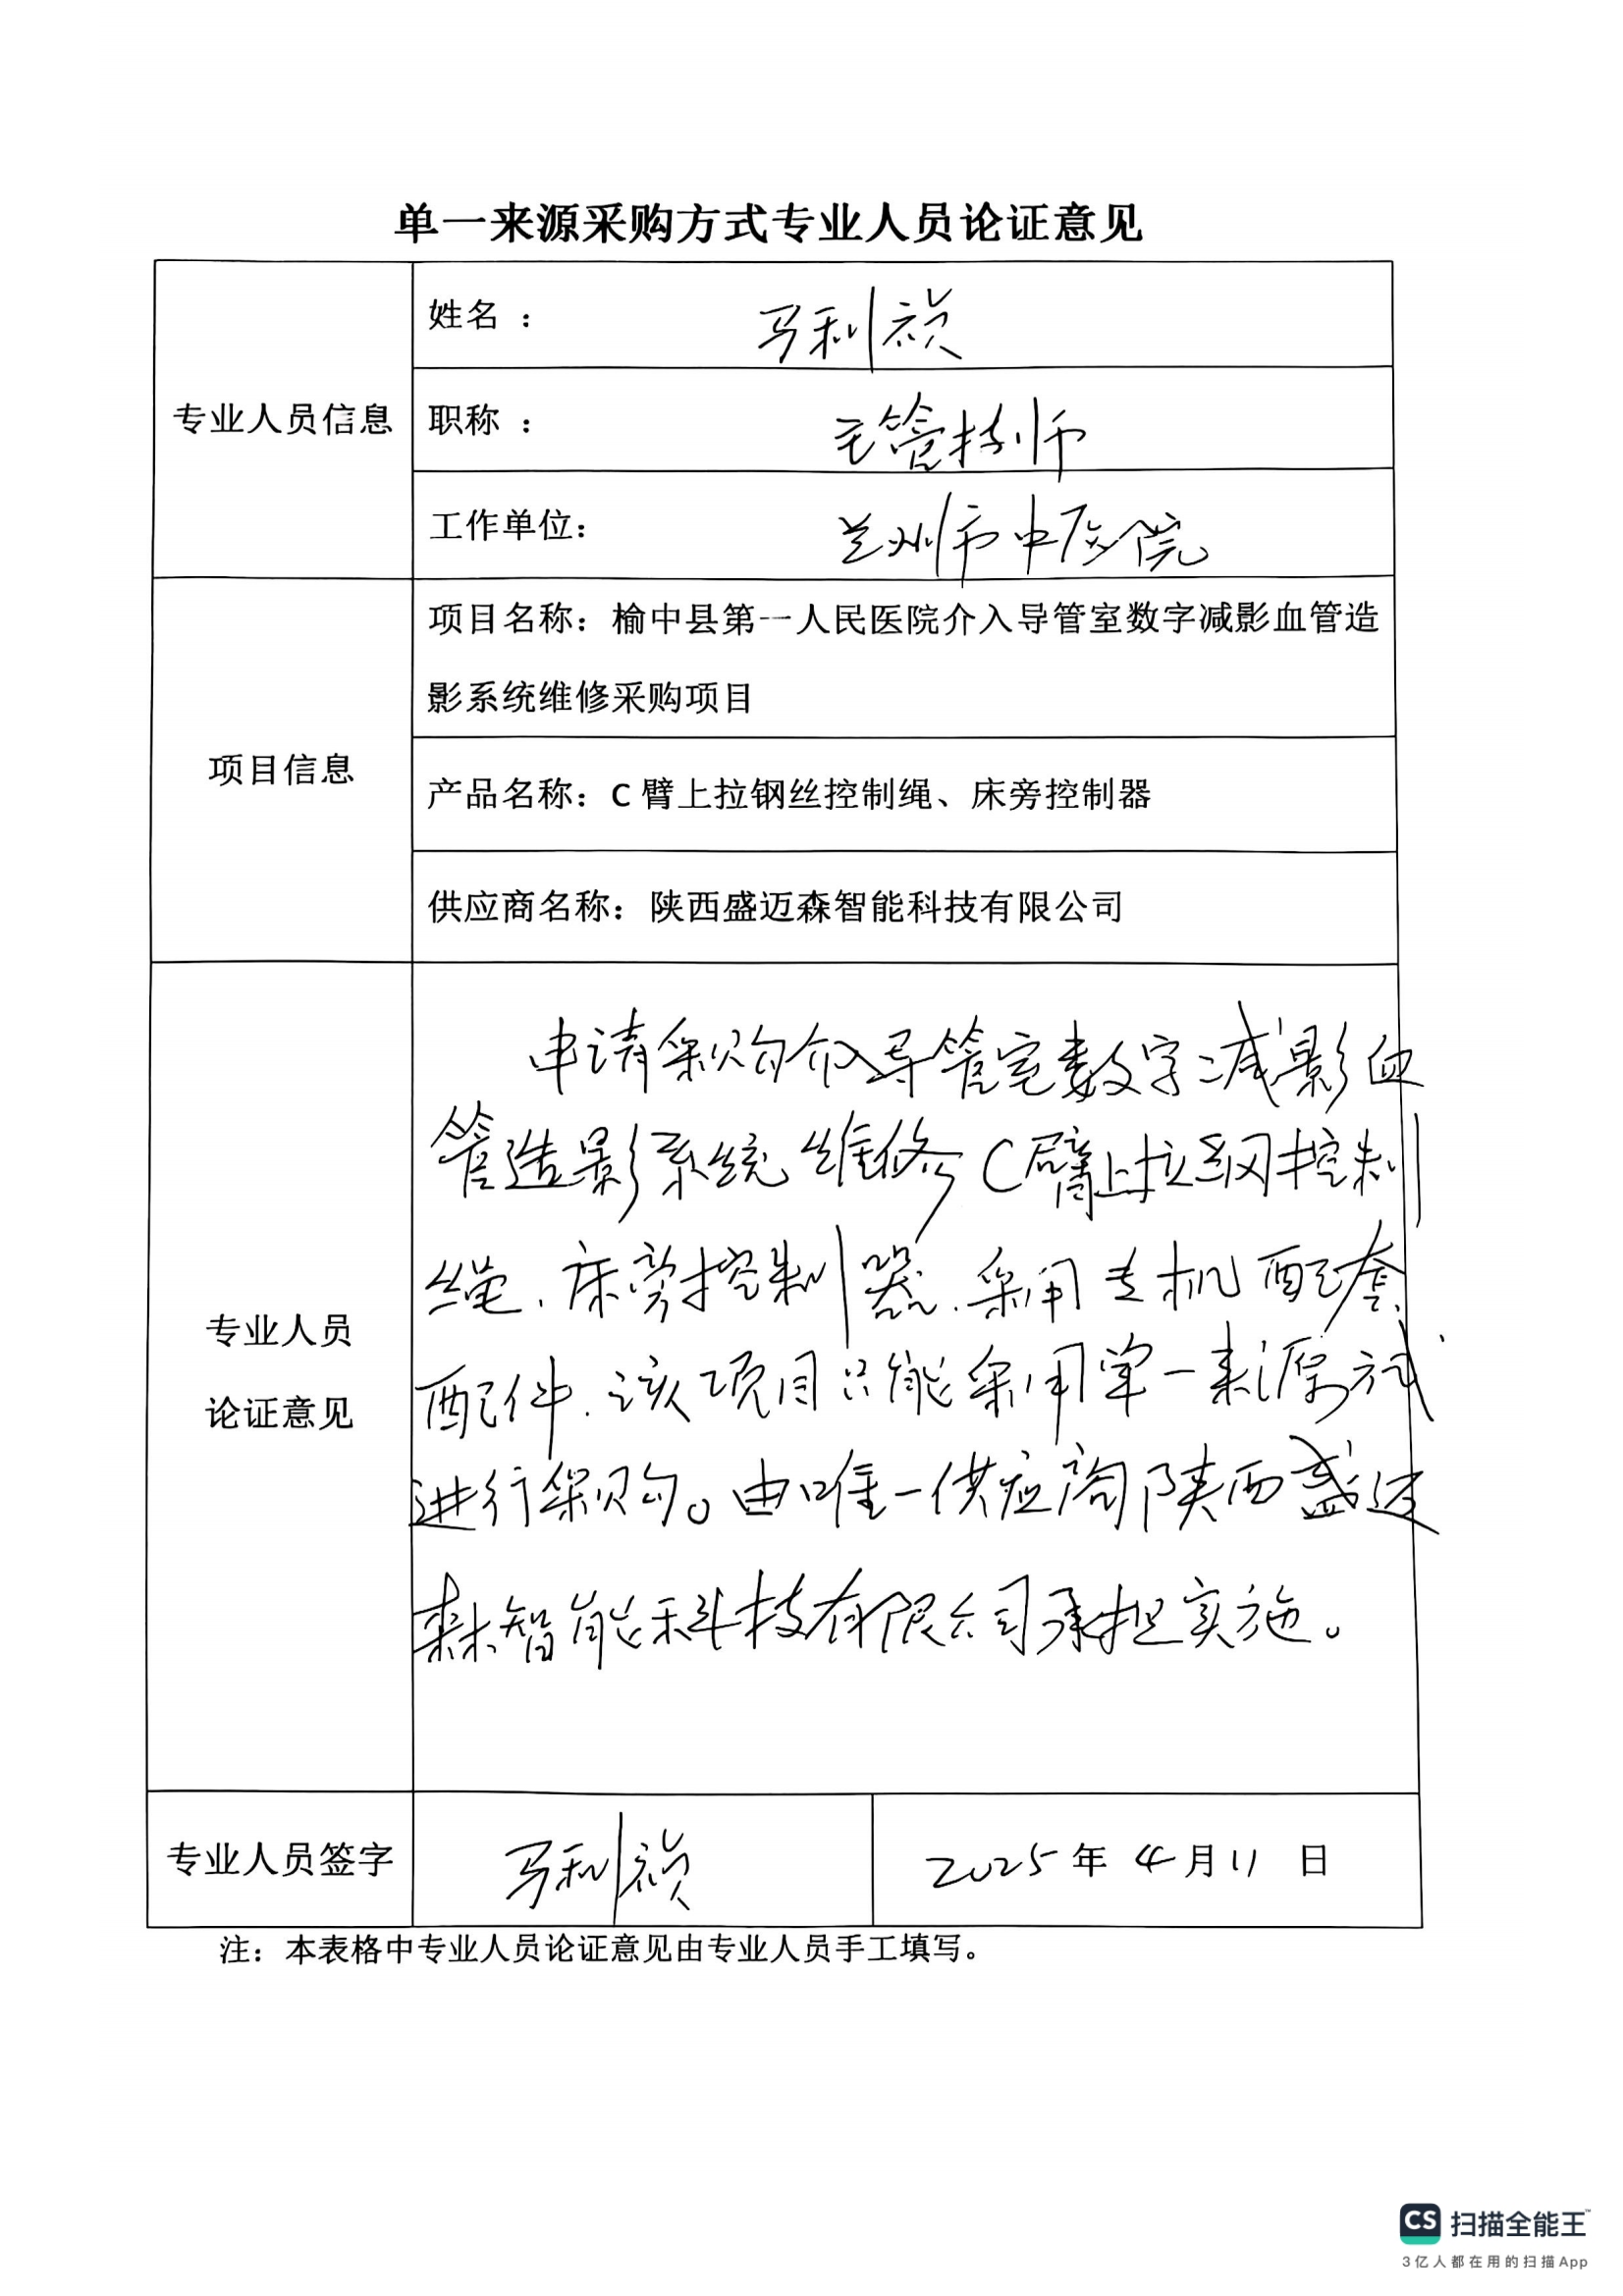 单一来源采购方式专业人员论证意见
专业人员信息
姓名 ： 马利祯
职称 ： 主管技师
工作单位： 兰州市中医院
项目信息
项目名称：榆中县第一人民医院介入导管室数字减影血管造
影系统维修采购项目
产品名称：C 臂上拉钢丝控制绳、床旁控制器
供应商名称：陕西盛迈森智能科技有限公司
专业人员
论证意见
申请采购介入导管室数字减影血
管造影系统维修C臂上拉丝网控制
绳、床旁控制器.采用专机配套
配件.该项目只能采用单一来源方式
进行采购。由唯一供应商陕西盛迈
森智能科技有限公司承担实施。
专业人员签字
马利祯
2025 年 4 月 11 日
注：本表格中专业人员论证意见由专业人员手工填写。
CS 扫描全能王™
3亿人都在用的扫描App